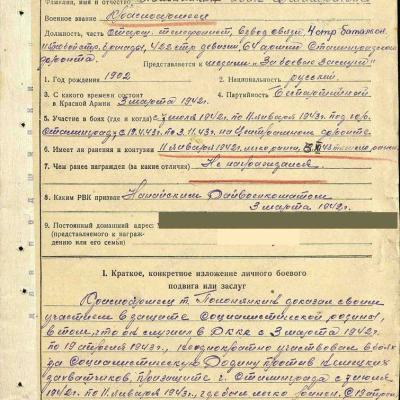 Фамилия, имя и отчество
Военное звание Красноармеец
Должность, часть Старш. телефонист, взвод связи, 4 отр. батальон
422 стр. дивизии, 64 арм. Сталинградского
фронта
Представляется к медали „За боевые заслуги"
1. Год рождения 1902 2. Национальность русский
3. С какого времени состоит в Красной Армии 3 марта 1942г. 4. Партийность Беспартийный
5. Участие в боях (где и когда) с июля 1942г. по 11 января 1943г. под гор.
Сталинград, с 19.IV.43г. по 3.11.43г. на Центральном фронте
6. Имеет ли ранения и контузии 11 января 1942г. легко ран.
7. Чем ранее награжден (за какие отличия) Не награждался
8. Каким РВК призван Нанайским Райвоенкоматом
3 марта 1942г.
9. Постоянный домашний адрес:
(представляемого к награждению или его семьи)
I. Краткое, конкретное изложение личного боевого
подвига или заслуг
Красноармеец т. доказал своим
участием в защите Социалистической родины,
в том, что он служил в РККА с 3 марта 1942г.
по 19 апреля 1943г., неоднократно участвовал в боях
за Социалистическую Родину против немецких
захватчиков, при защите г. Сталинграда с июля
1942г. по 11 января 1943г., где был легко ранен. С 19 апрел